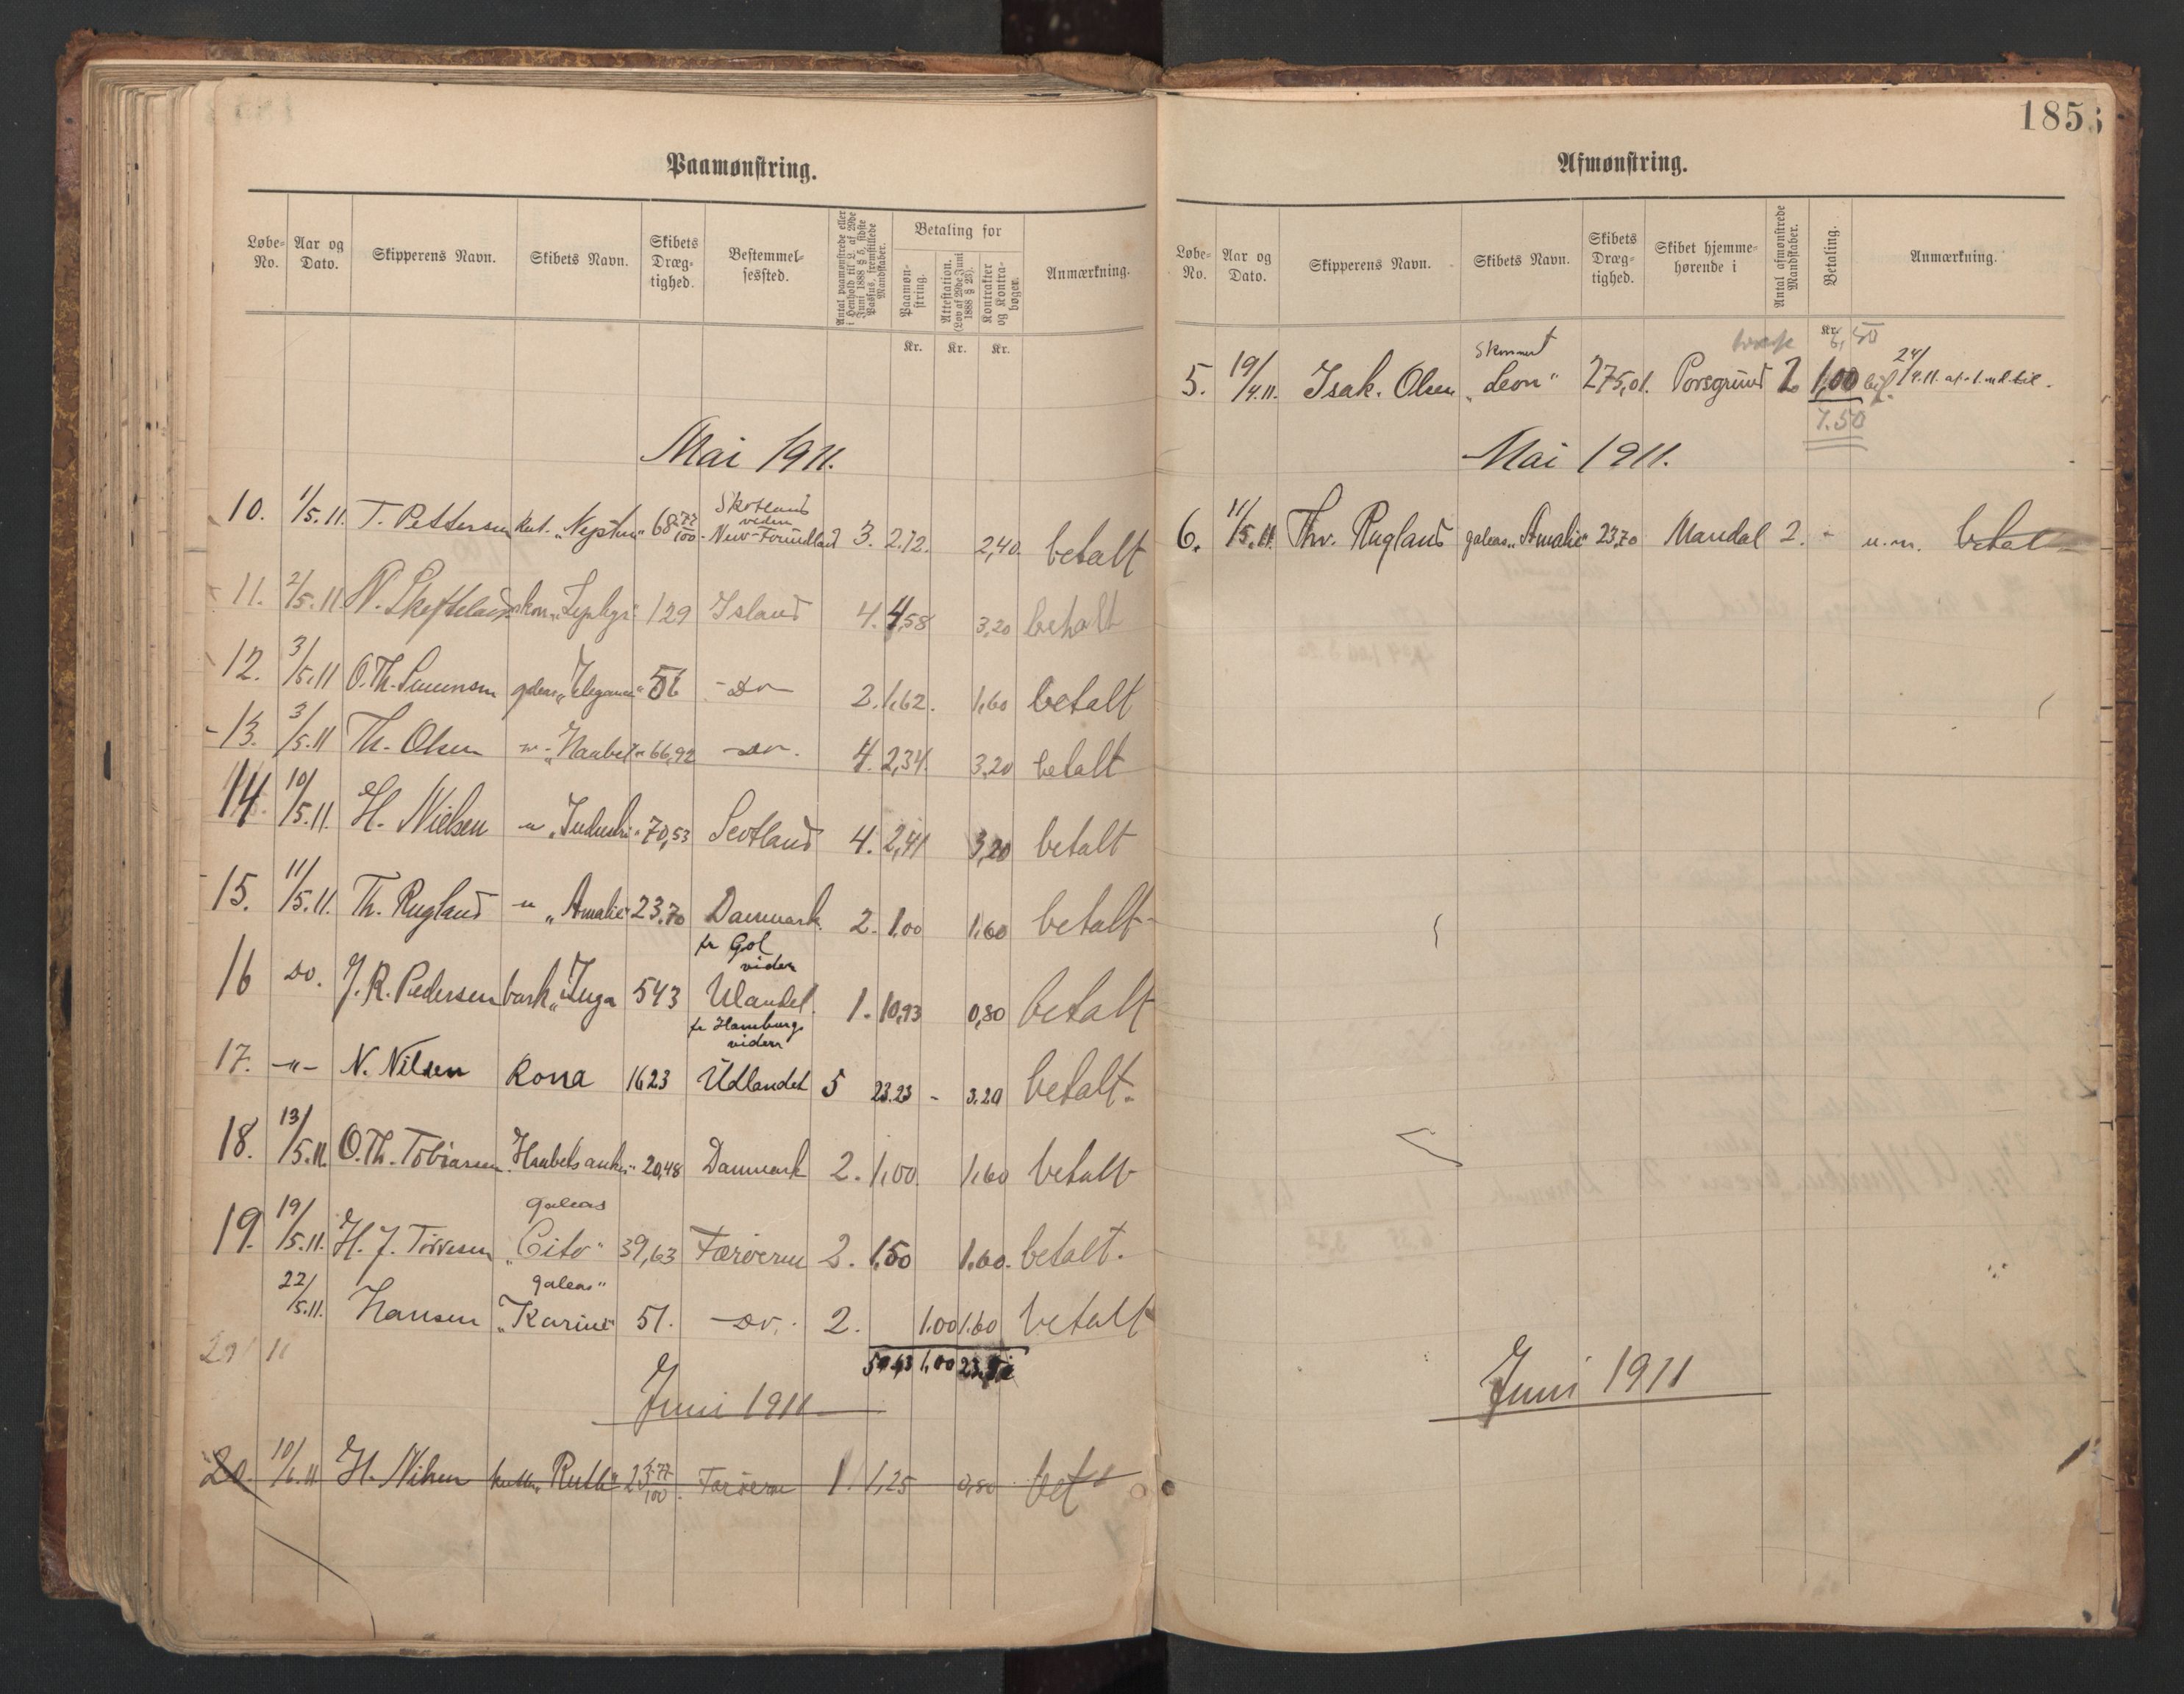 1853
Paamønstring.
Løbe-No. Aar og Dato. Skipperens Navn. Skibets Navn. Skibets Dræg-tighed. Bestemmel-sessted. Antal paamønstrede eller i Henhold til L. af 29de Juni 1888 § 5, sidste Passus, fremstillede Mandskaber. Betaling for Paamøn-string. Attestation. (Lov af 29de Juni 1888 § 23). Kontrakter og Kontra-bøger. Anmærkning.
Kr. Kr. Kr.
Mai 1911.
10. 1/5.11. T. Pettersen kut. "Neptun" 68 77/100 Skotland videre New-Foundland 3. 2,12. 2,40. betalt
11. 2/5.11 N. skon. "Zephyr" 129 Island 4. 4,58 3,20 betalt
12. 3/5.11 O. Th. galeas "Elegance" 56 - Do - 2. 1,62. 1,60 betalt
13. 3/5.11 Th. Olsen "Haabet" 66,92 - Do -. 4. 2,34. 3.20 betalt
14. 10/5.11. H. Nielsen " "Industri" 70,53 Scotland 4. 2,41 3,20 betalt
15. 11/5.11. Th. Rugland " "Amalie" 23.70 Danmark 2. 1.00 1.60 betalt
16 Do. J. R. Pedersen bark "Inga 543 fr Gol vider Utlandet. 1. 10,93 0,80 betalt
17. -"- N. Nilsen Rona 1623 fr Hamburg videre Udlandet 5 23.23 - 3.20 betalt.
18. 13/5.11. O. Th. Tobiassen "Haabets anker" 20,48 Danmark 2. 1,00. 1,60 betalt
19. 19/5.11. H. J. Tørresen galeas "Cito" 39,63 Færøerne 2. 1,50 1.60. betalt.
22/5.11. Hansen galeas "Karine" 51. - Do. - 2. 1.00 1.60 betalt
1,00
Juni 1911
20. 10/6.11 H. Nilsen kutter "Ruth" Færøerne 1 1,25 0,80 bet
Afmønstring.
Løbe-No. Aar og Dato. Skipperens Navn. Skibets Navn. Skibets Dræg-tighed. Skibet hjemme-hørende i Antal afmønstrede Mandskaber. Betaling. Anmærkning.
Kr. 6,50
5. 19/4.11. Isak. Olsen Skonnert "Leon" 275,01. Porsgrund 2 1,00 24/4.11.
7.50
Mai 1911.
6. 11/5.11. Thv. Rugland galeas "Amalie" 23,70 Mandal 2. - u.m. betal
Juni 1911